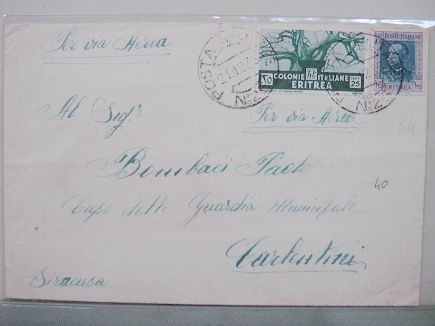 Per via Aerea
POSTE ITALIANE
10 COLONIE ITALIANE 25
ERITREA
ERITREA
POSTA
Al Sigr.
Per via Aerea
34
Bombaci Paolo
40
Capo delle Guardie Municipale
Carlentini
Siracusa